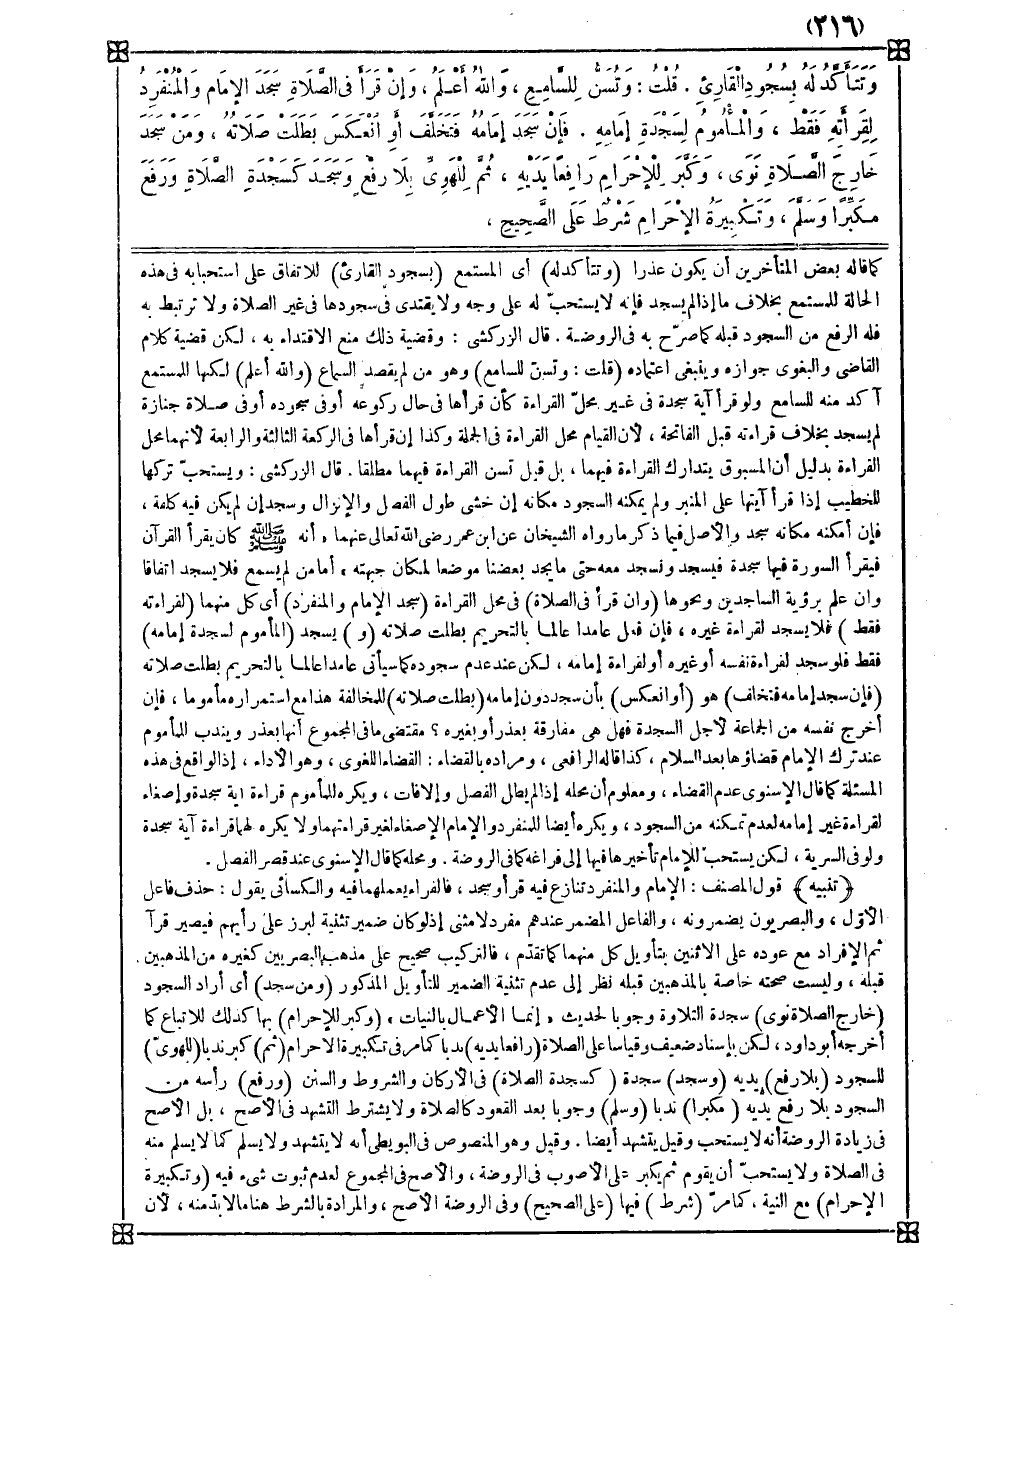 (٢١٦)
وَتَتَأَكَّدُ لَهُ بِسُجُودِ الْقَارِئِ . قُلْتُ : وَتُسَنُّ لِلسَّامِعِ ، وَاللهُ أَعْلَمُ ، وَإِنْ قَرَأَ فِي الصَّلَاةِ سَجَدَ الإِمَامُ وَالْمُنْفَرِدُ
لِقِرَاءَتِهِ فَقَطْ ، وَالْمَأْمُومُ لِسَجْدَةِ إِمَامِهِ . فَإِنْ سَجَدَ إِمَامُهُ فَتَخَلَّفَ أَوِ انْعَكَسَ بَطَلَتْ صَلَاتُهُ ، وَمَنْ سَجَدَ
خَارِجَ الصَّلَاةِ نَوَى ، وَكَبَّرَ لِلْإِحْرَامِ رَافِعًا يَدَيْهِ ، ثُمَّ لِلْهَوِيِّ بِلَا رَفْعٍ وَسَجَدَ كَسَجْدَةِ الصَّلَاةِ وَرَفَعَ
مُكَبِّرًا وَسَلَّمَ ، وَتَكْبِيرَةُ الإِحْرَامِ شَرْطٌ عَلَى الصَّحِيحِ ،
كما قاله بعض المتأخرين أن يكون عذرا (وتتأكد له) أى المستمع (بسجود القارئ) للاتفاق على استحبابه فى هذه
الحالة للمستمع بخلاف ما إذا لم يسجد فإنه لا يستحبّ له على وجه ولا يقتدى فى سجودها فى غير الصلاة ولا ترتبط به
فله الرفع من السجود قبله كما صرّح به فى الروضة . قال الزركشى : وقضية ذلك منع الاقتداء به ، لكن قضية كلام
القاضى والبغوى جوازه وينبغى اعتماده (قلت : وتسنّ للسامع) وهو من لم يقصد السماع (والله أعلم) لكنها للمستمع
آكد منه للسامع ولو قرأ آية سجدة فى غير محلّ القراءة كأن قرأها فى حال ركوعه أو فى سجوده أو فى صلاة جنازة
لم يسجد بخلاف قراءته قبل الفاتحة ، لأن القيام محل القراءة فى الجملة وكذا إن قرأها فى الركعة الثالثة والرابعة لأنهما محل
القراءة بدليل أن المسبوق يتدارك القراءة فيهما ، بل قيل تسن القراءة فيهما مطلقا . قال الزركشى : ويستحبّ تركها
للخطيب إذا قرأ آيتها على المنبر ولم يمكنه السجود مكانه إن خشى طول الفصل والإنزال وسجد إن لم يكن فيه كلفة ،
فإن أمكنه مكانه سجد والأصل فيما ذكر ما رواه الشيخان عن ابن عمر رضى الله تعالى عنهما « أنه ﷺ كان يقرأ القرآن
فيقرأ السورة فيها سجدة فيسجد ونسجد معه حتى ما يجد بعضنا موضعا لمكان جبهته » أما من لم يسمع فلا يسجد اتفاقا
وإن علم برؤية الساجدين ونحوها (وإن قرأ فى الصلاة) فى محل القراءة (سجد الإمام والمنفرد) أى كل منهما (لقراءته
فقط) فلا يسجد لقراءة غيره ، فإن فعل عامدا عالما بالتحريم بطلت صلاته (و) يسجد (المأموم لسجدة إمامه)
فقط فلو سجد لقراءة نفسه أو غيره أو لقراءة إمامه ، لكن عند عدم سجوده كما سيأتى عامدا عالما بالتحريم بطلت صلاته
(فإن سجد إمامه فتخلف) هو (أو انعكس) بأن سجد دون إمامه (بطلت صلاته) للمخالفة هذا مع استمراره مأموما ، فإن
أخرج نفسه من الجماعة لأجل السجدة فهل هى مفارقة بعذر أو بغيره ؟ مقتضى ما فى المجموع أنها بعذر ويندب للمأموم
عند ترك الإمام قضاؤها بعد السلام ، كذا قاله الرافعى ، ومراده بالقضاء : القضاء اللغوى ، وهو الأداء ، إذ الواقع فى هذه
المسئلة كما قال الإسنوى عدم القضاء ، ومعلوم أن محله إذا لم يطل الفصل وإلا فات ، ويكره للمأموم قراءة آية سجدة وإصغاء
لقراءة غير إمامه لعدم تمكنه من السجود ، ويكره أيضا للمنفرد والإمام الإصغاء لغير قراءتهما ولا يكره لهما قراءة آية سجدة
ولو فى السرية ، لكن يستحبّ للإمام تأخيرها فيها إلى فراغه كما فى الروضة . ومحله كما قال الإسنوى عند قصر الفصل .
﴿تنبيه﴾ قول المصنف : الإمام والمنفرد تنازع فيه قرأ وسجد ، فالفراء يعملهما فيه والكسائى يقول : حذف فاعل
الأوّل ، والبصريون يضمرونه ، والفاعل المضمر عندهم مفرد لا مثنى إذ لو كان ضمير تثنية لبرز على رأيهم فيصير قرآ
ثم الإفراد مع عوده على الاثنين بتأويل كل منهما كما تقدّم ، فالتركيب صحيح على مذهب البصريين كغيره من المذهبين .
قبله ، وليست صحته خاصة بالمذهبين قبله نظر إلى عدم تثنية الضمير للتأويل المذكور (ومن سجد) أى أراد السجود
(خارج الصلاة نوى) سجدة التلاوة وجوبا لحديث « إنما الأعمال بالنيات » (وكبر للإحرام) بها كذلك للاتباع كما
أخرجه أبو داود ، لكن بإسناد ضعيف وقياسا على الصلاة (رافعا يديه) ندبا كما مر فى تكبيرة الإحرام (ثم) كبر ندبا (للهوىّ)
للسجود (بلا رفع) ليديه (وسجد) سجدة (كسجدة الصلاة) فى الأركان والشروط والسنن (ورفع) رأسه من
السجود بلا رفع يديه (مكبرا) ندبا (وسلم) وجوبا بعد القعود كالصلاة ولا يشترط التشهد فى الأصح ، بل الأصح
فى زيادة الروضة أنه لا يستحب وقيل يتشهد أيضا . وقيل وهو المنصوص فى البويطى أنه لا يتشهد ولا يسلم كما لا يسلم منه
فى الصلاة ولا يستحبّ أن يقوم ثم يكبر على الأصوب فى الروضة ، والأصح فى المجموع لعدم ثبوت شىء فيه (وتكبيرة
الإحرام) مع النية ، كما مرّ (شرط) فيها (على الصحيح) وفى الروضة الأصح ، والمراد بالشرط هنا ما لا بدّ منه ، لأن